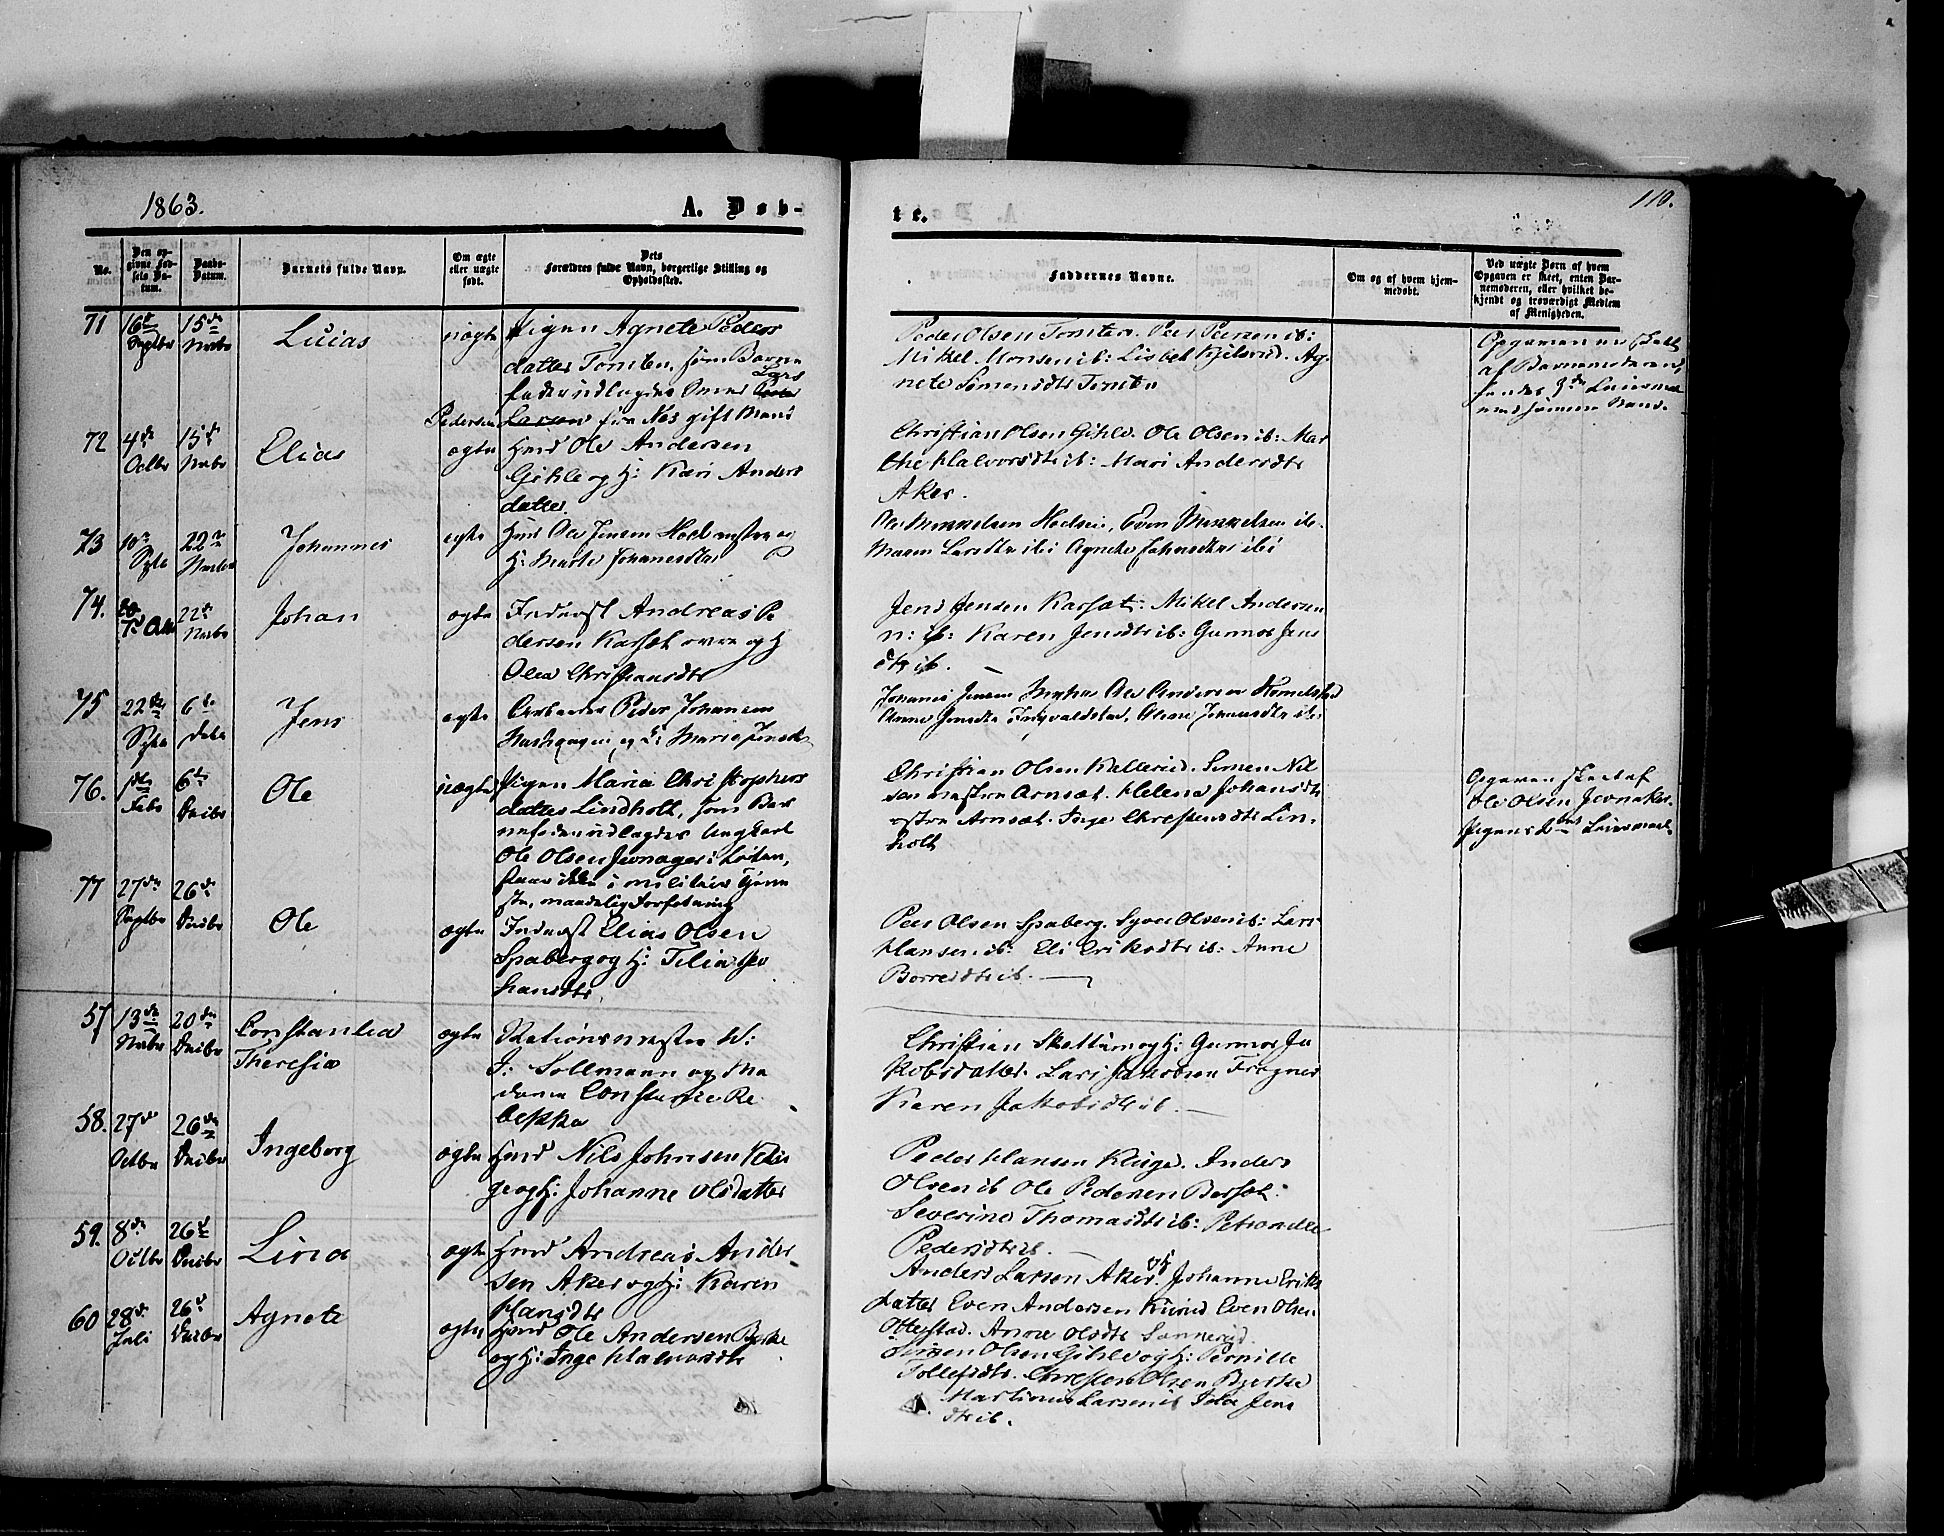 1863.
A. Døb-
te.
110.
No.
Den op-
givne Fød-
sels Da-
tum.
Daabs-
Datum.
Barnets fulde Navn.
Om ægte
eller uægte
født.
Dets
Forældres fulde Navn, borgerlige Stilling og
Opholdssted.
Faddernes Navne.
Om og af hvem hjem-
medøbt.
Ved uægte Børn af hvem
Opgaven er skeet, enten Bar-
nemoderen, eller hvilket be-
kjendt og troværdigt Medlem
af Menigheden.
71
16de
Septbr
15de
Novbr
Lucas
uægte
Pigen Agnete Peders
datter Tomten, som Barne
fader udlagdes Lars
Pedersen fra Nes gift Mand
Peder Olsen Tomten. Peer Peersen ib:
Mikel Monsen ib: Lisbet Kjelsrud. Ag
nete Simensdtr Tomten
Opgaven er skeet
af Barnemoderen,
72
4de
Octbr
15de
Novbr
Elias
ægte
Hmd Ole Andersen
Gihle og H: Kari Anders
datter
Christian Olsen Gihle. Ole Olsen ib: Mar
the Halvorsdtr ib: Mari Andersdtr
Aker.
73
10de
Spbr
22de
Novbr
Johannes
ægte
Hmd Ole Jensen Hoel nestre og
H: Marte Johannesdtr
Ole Mikkelsen Hoelsei, Even Mikkelsen ib.
Maren Larsdtr ibi Agnete Johnsdtr ibi
74.
7de Okt
22de
Novbr
Johan
ægte
Inderst Andreas Pe
dersen Karset øvre og H
Olea Christiansdtr
Jens Jensen Karset. Mikel Andersen
n: ib: Karen Jensdtr ib: Gunnor Jens
dtr ib.
75
22de
Spbr
6te
Debr
Jens
ægte
Peder Johansen
og H: Marie Jensdtr
Johannes Jensen Ole Andersen
Anne Jensdtr Ingvaldstad, Johannesdtr ibi
76.
1ste
Febr
6te
Decbr
Ole
uægte
Pigen Maria Christophers
datter Lindholt, som Bar
nefader udlagdes Ungkarl
Ole Olsen Jevnager i Løten,
staar ikke i militær Tjene
ste, maadelig Forfatning
Christian Olsen Kallerud. Simen Nil
sen nestre Arnset. Helene Johansdtr
østre Arnset. Inge Christensdtr Lin
holt
Opgaven skeet af
Ole Olsen Jevnaker.
Pigens Leiermaal
77
27de
Septbr
26de
Decbr
Ole
ægte
Inderst Elias Olsen
Spaberg og H: Telia Jo
hansdtr
Peer Olsen Spaberg. Syver Olsen ib: Lars
Hansen ib: Eli Eriksdtr ib: Anne
Borresdtr ib.
57
13de
Novbr
20de
Decbr
Constantia
Theresia
ægte
Stationsmester W:
J: Sollmann og Ma
dame Constance Re
bekka
Christian Skattum og H: Gunnor Ja
kobsdatter. Lars Jakobsen Fragner
Karen Jakobsdtr ib.
58.
27de
Octbr
26de
Decbr
Ingeborg
ægte
Hmd Nils Johnsen Klin
ge og H: Johanne Olsdatter
Peder Hansen Klinge. Anders
Olsen ib Ole Pedersen Berset.
Severine Thomasdtr ib: Petronelle
Pedersdtr ib.
59.
8de
Octbr
26de
Decbr
Lina
ægte
Hmd Andreas Ander
sen Aker og H: Karen
Hansdtr
Anders Larsen Aker. og H Johanne Eriks
datter Even Andersen Kurud Even Olsen
Ottestad. Anne Olsdtr Sannerud.
60
28de
Juli
26de
Decbr
Agnete
ægte
Hmd Ole Andersen Bjerke
og H: Inge Halvorsdtr
Simen Olsen Gihle og H: Pernille
Tollefsdtr. Christen Olsen Bjerke
Martinus Larsen ib Ida Jens
dtr ib.